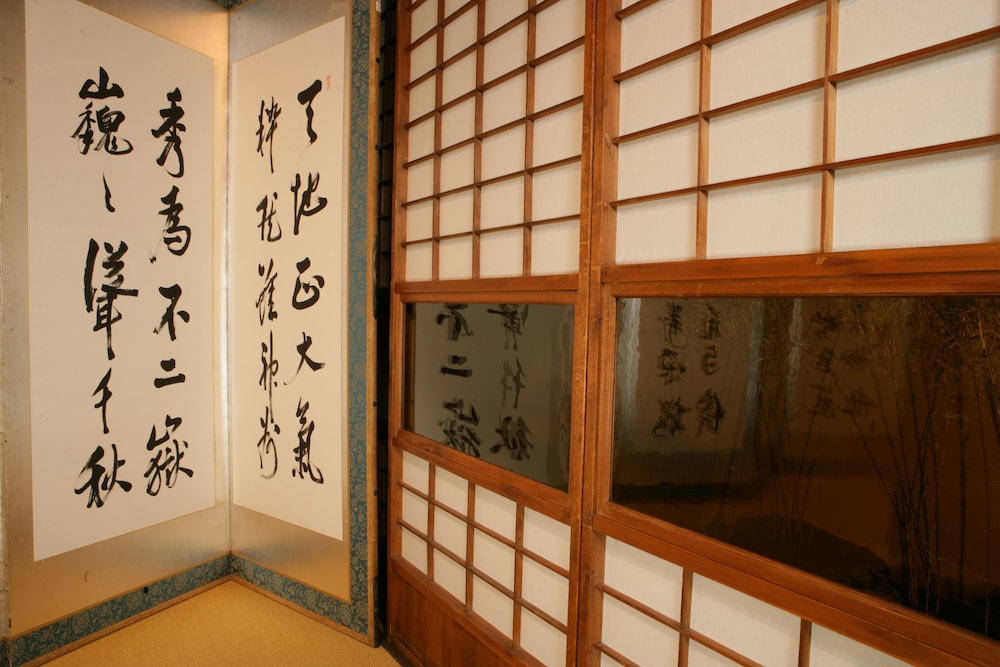 天地正大氣
粹然鍾神州
秀為不二嶽
巍〻聳千秋